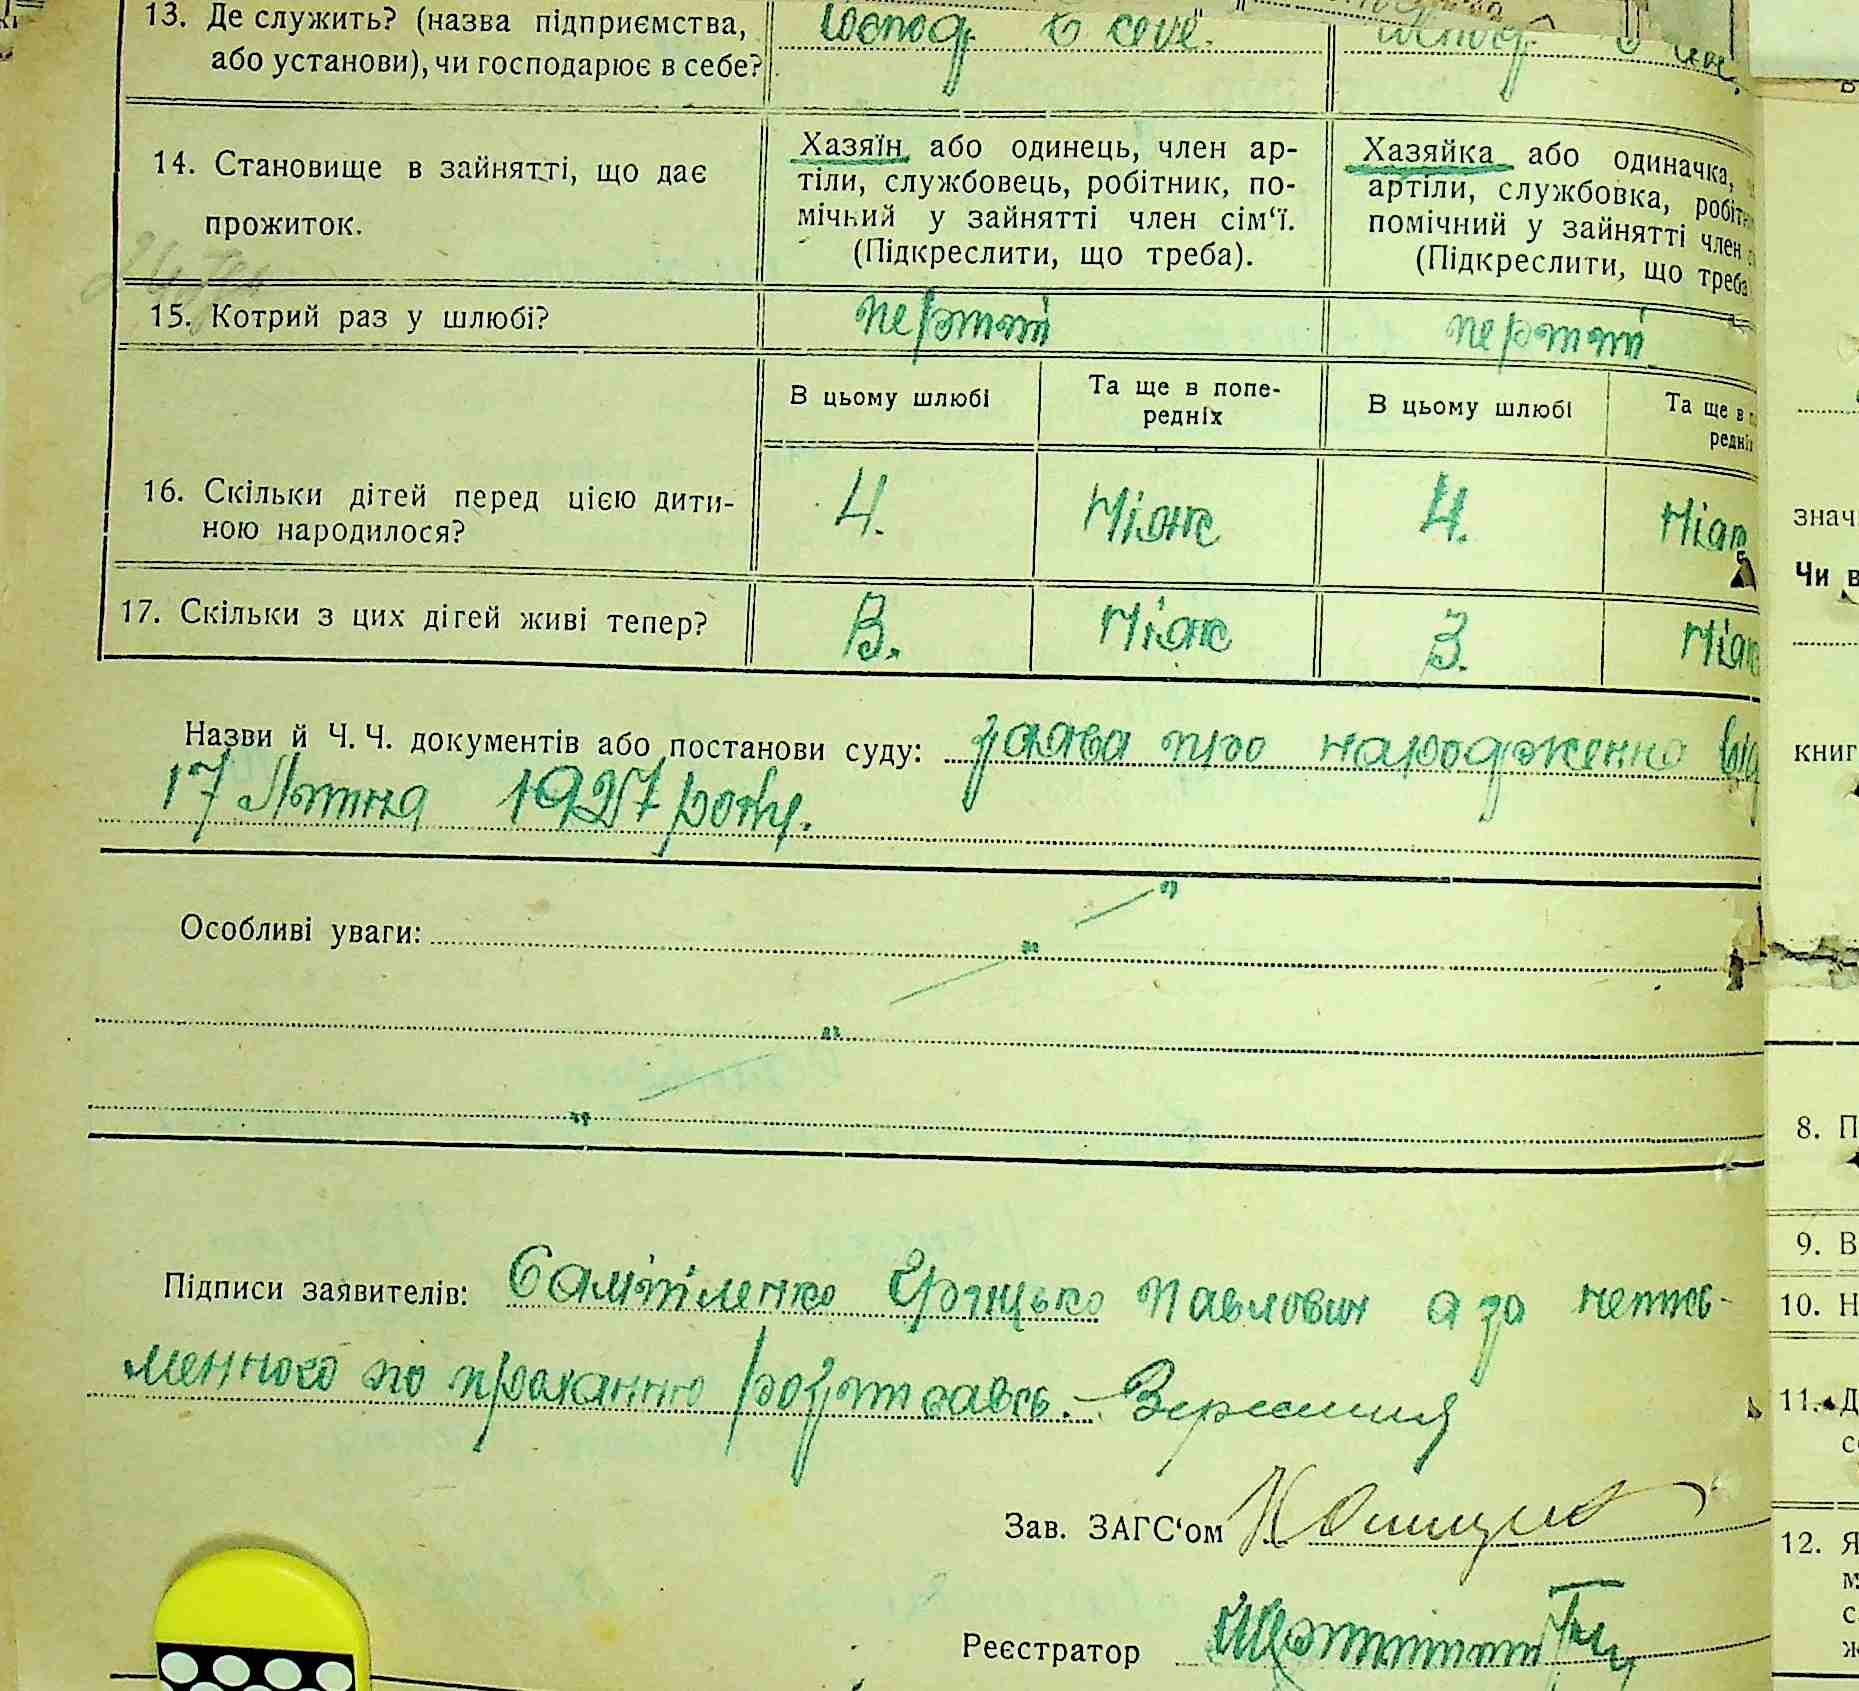 13. Де служить? (назва підприємства, або установи), чи господарює в себе?
Господ. в себе.
14. Становище в зайнятті, що дає прожиток.
Хазяїн або одинець, член ар-
тіли, службовець, робітник, по-
мічний у зайнятті член сім‘ї.
(Підкреслити, що треба).
Хазяйка або одиначка,
артіли, службовка,
помічний у зайнятті член
(Підкреслити, що треба
15. Котрий раз у шлюбі?
перший
перший
В цьому шлюбі
Та ще в попе-
редніх
В цьому шлюбі
Та ще в
16. Скільки дітей перед цією дити-
ною народилося?
4.
4.
17. Скільки з цих дітей живі тепер?
3.
3.
Назви й Ч. Ч. документів або постанови суду: заява про народження від
17 Лютня 1927 року.
Особливі уваги:
Підписи заявителів: Грицько Павлович а за непись-
менного по проханню розписавсь.
Зав. ЗАГС‘ом
Реєстратор
знач
Чи в
книг
8. П
9. В
10. Н
11. Д
12. Я